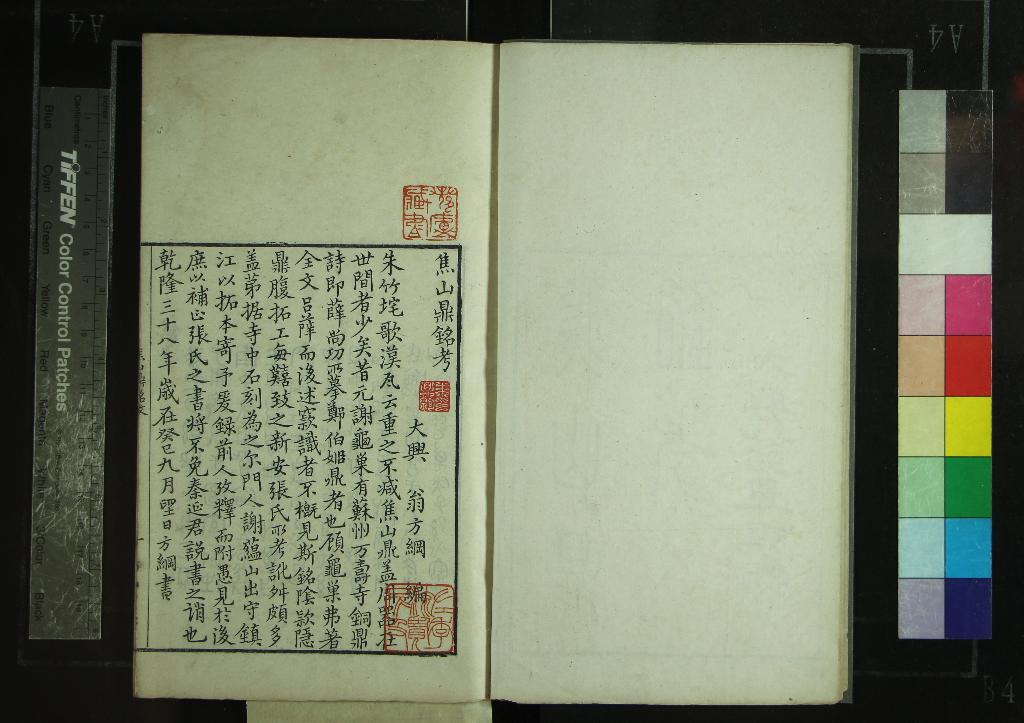 焦山鼎銘考
大興 翁方綱 編
朱竹垞歌漢瓦云重之不減焦山鼎盖周器在
世間者少矣昔元謝龜巢有蘇州万壽寺銅鼎
詩即薛尚功所摹鄭伯姬鼎者也顧龜巢弗著
全文吕薛而後述窾識者不概見斯銘陰款隱
鼎腹拓工每囏致之新安張氏所考訛舛頗多
盖苐据寺中石刻為之尔門人謝蘊山出守鎮
江以拓本寄予爰録前人攷釋而附愚見於後
庶以補正張氏之書將不免秦延君説書之誚也
乾隆三十八年歲在癸巳九月朢日方綱書
TIFFEN Color Control Patches
Centimetres
Blue
Cyan
Green
Yellow
Red
Magenta
White
3/Color
Black
A4
A4
B4